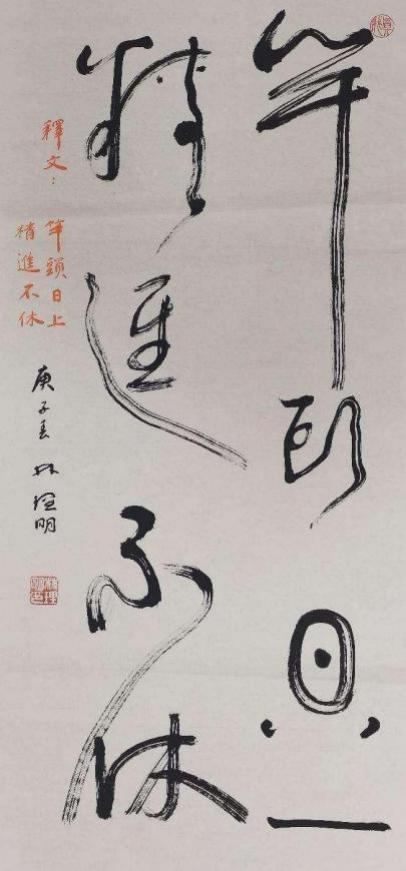 竿頭日上
精進不休
釋文：竿頭日上
精進不休
庚子春林理明